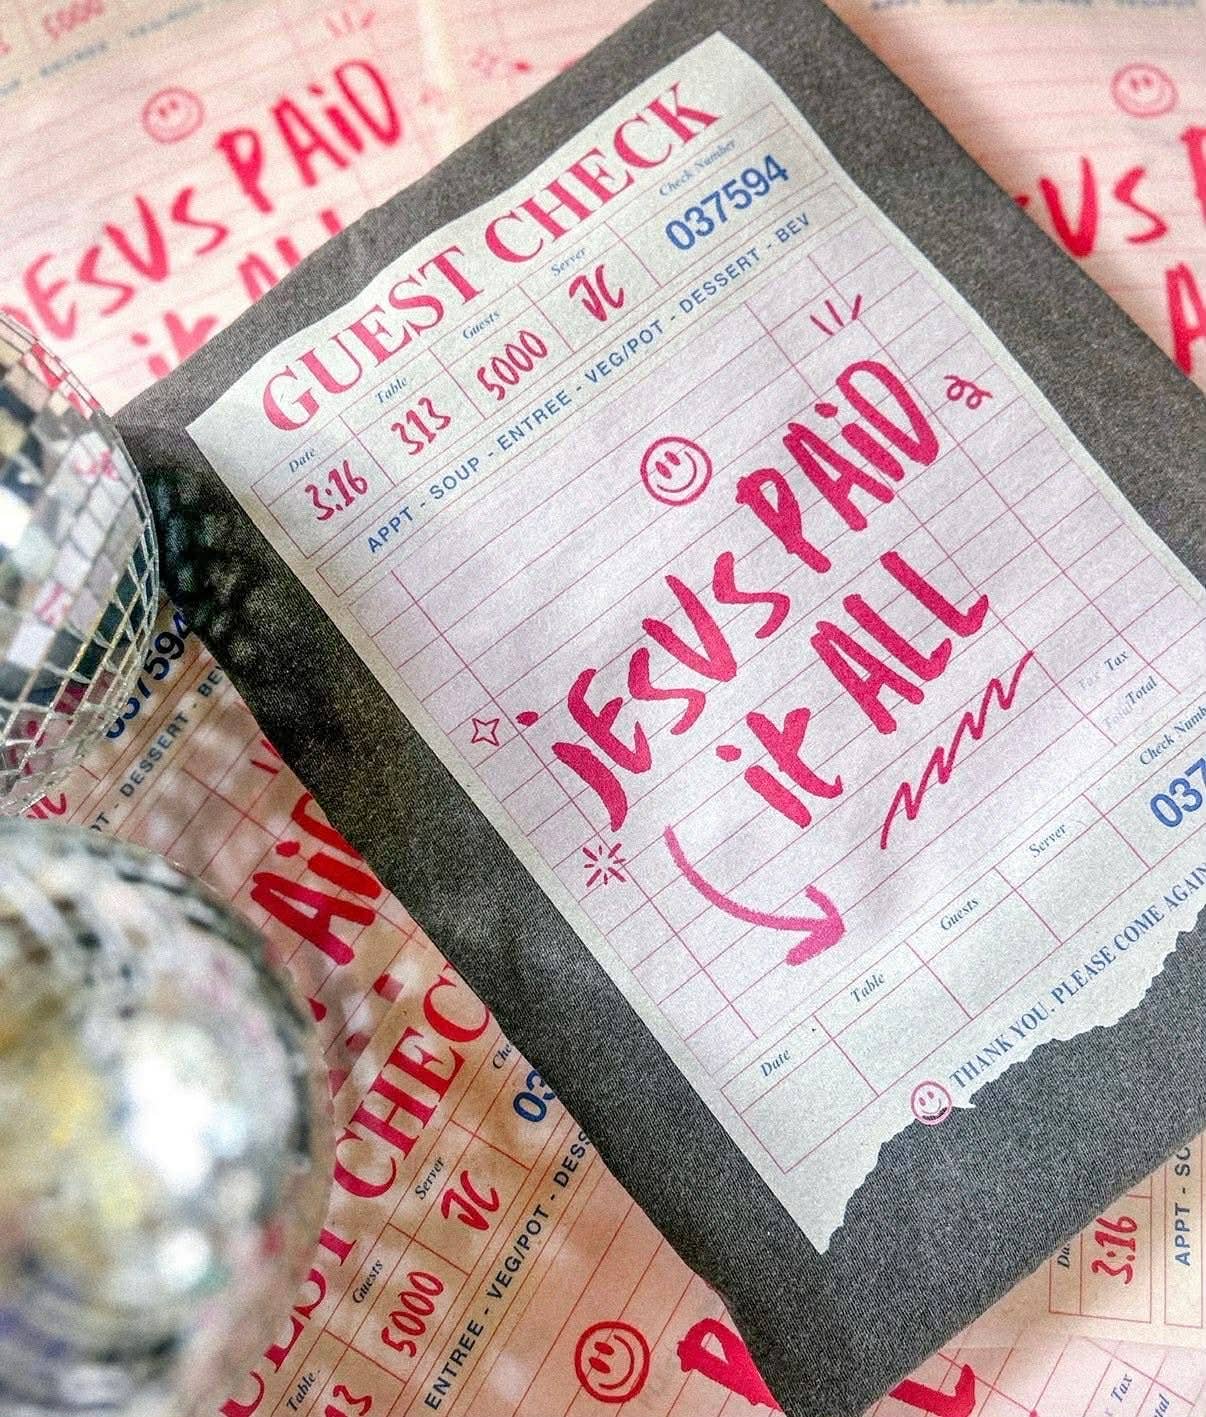 GUEST CHECK
Date Table Guests Server Check Number
3:16 313 5000 JC 037594
APPT - SOUP - ENTREE - VEG/POT - DESSERT - BEV
JESUS PAiD
it ALL
Tax
Total
Date Table Guests Server Check Numb
037
THANK YOU. PLEASE COME AGAIN
JESUS PAiD
it ALL
US P
A
037594
DESSERT - BE
PAiD
GUEST CHECK
Table Guests Server Che
313 5000 JC 03
ENTREE - VEG/POT - DESS
3:16
APPT - SO
Tax